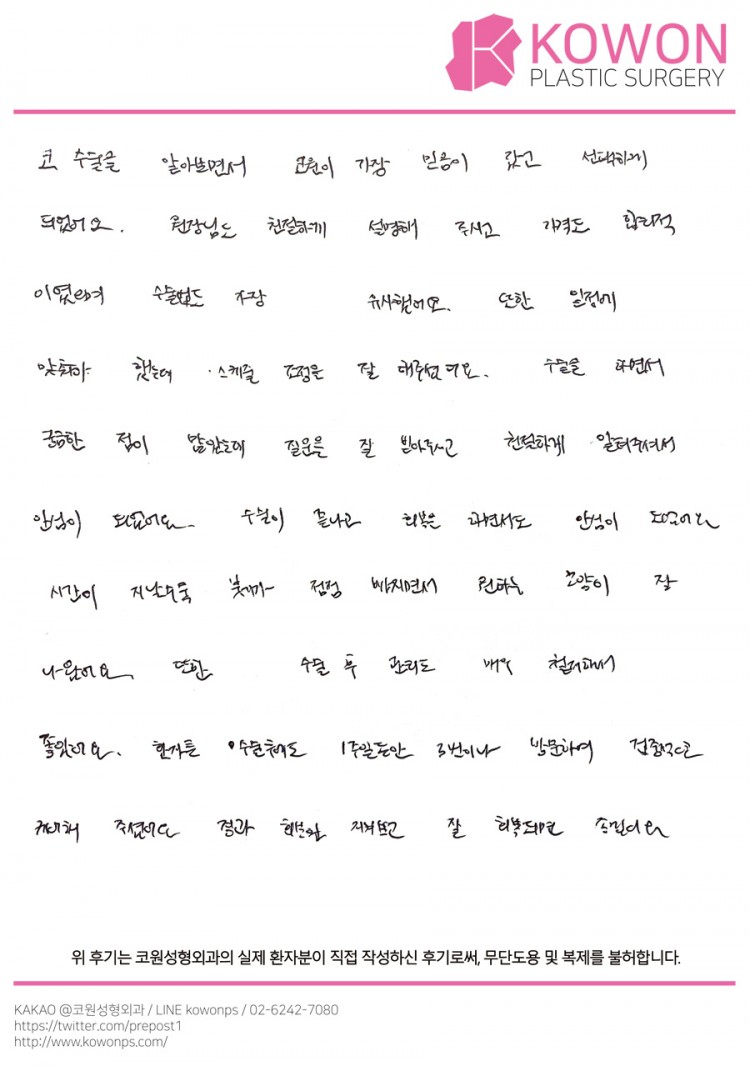 KOWON
PLASTIC SURGERY
코 수술을 알아보면서 코원이 가장 믿음이 갔고 선택하게
되었어요. 원장님도 친절하게 설명해 주시고 가격도 합리적
이였으며 수술법도 가장 유사했어요. 또한 일정에
맞춰야 했는데 스케줄 조정은 잘 해주셨어요. 수술을 하면서
궁금한 점이 많았는데 질문을 잘 받아주시고 친절하게 알려주셔서
안심이 되었어요. 수술이 끝나고 회복은 하면서도 안심이 되었어요
시간이 지날수록 붓기가 점점 빠지면서 원하는 모양이 잘
나왔어요. 또한 수술 후 관리도 매우 철저해서
좋았어요. 한가득 수술해도 1주일동안 3번이나 방문하여
주셨어요 결과 지켜보고 잘 회복되면
위 후기는 코원성형외과의 실제 환자분이 직접 작성하신 후기로써, 무단도용 및 복제를 불허합니다.
KAKAO @코원성형외과 / LINE kowonps / 02-6242-7080
https://twitter.com/prepost1
http://www.kowonps.com/